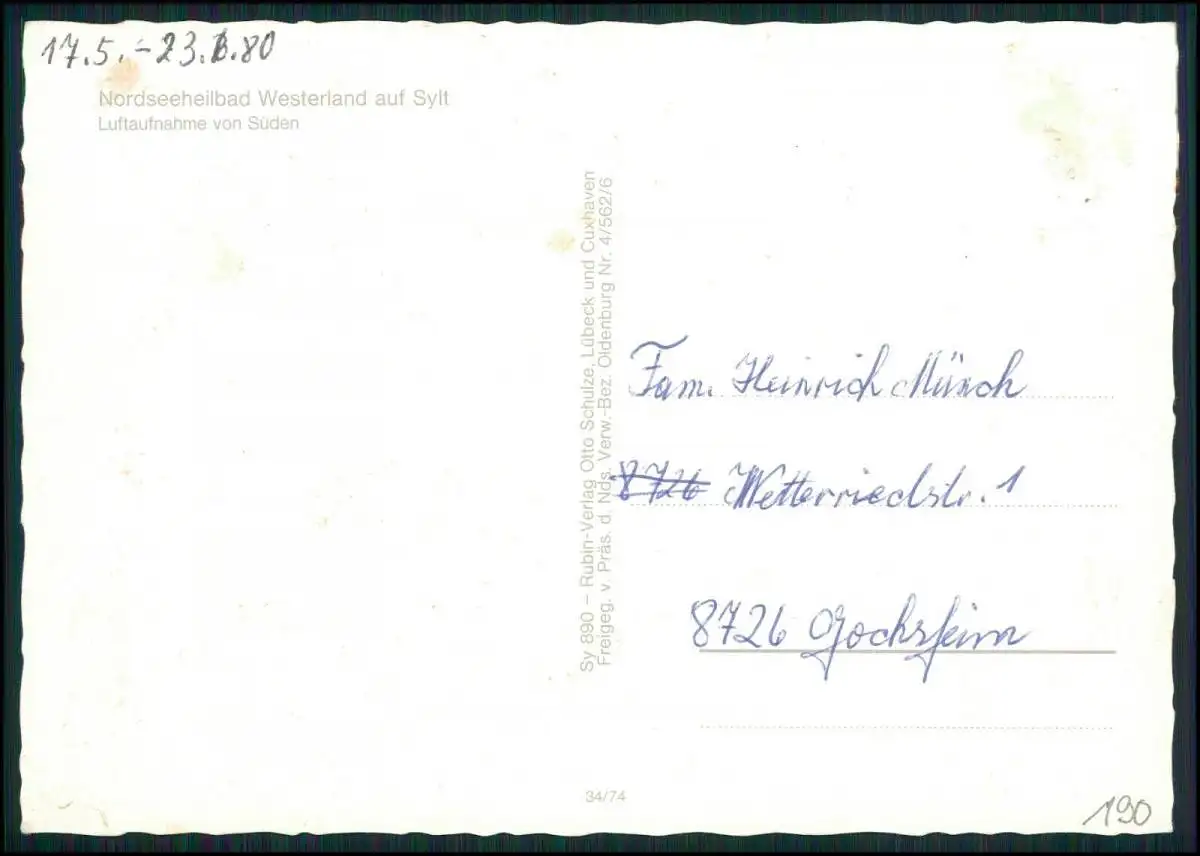 17.5.-23.6.80
Nordseeheilbad Westerland auf Sylt
Luftaufnahme von Süden
Sy 890 – Rubin-Verlag Otto Schulze, Lübeck und Cuxhaven
Freigeg. v. Präs. d. Nds. Verw.-Bez. Oldenburg Nr. 4/562/6
Fam. Heinrich Münch
8726 Wetterriedstr. 1
8726 Gochsheim
34/74
190